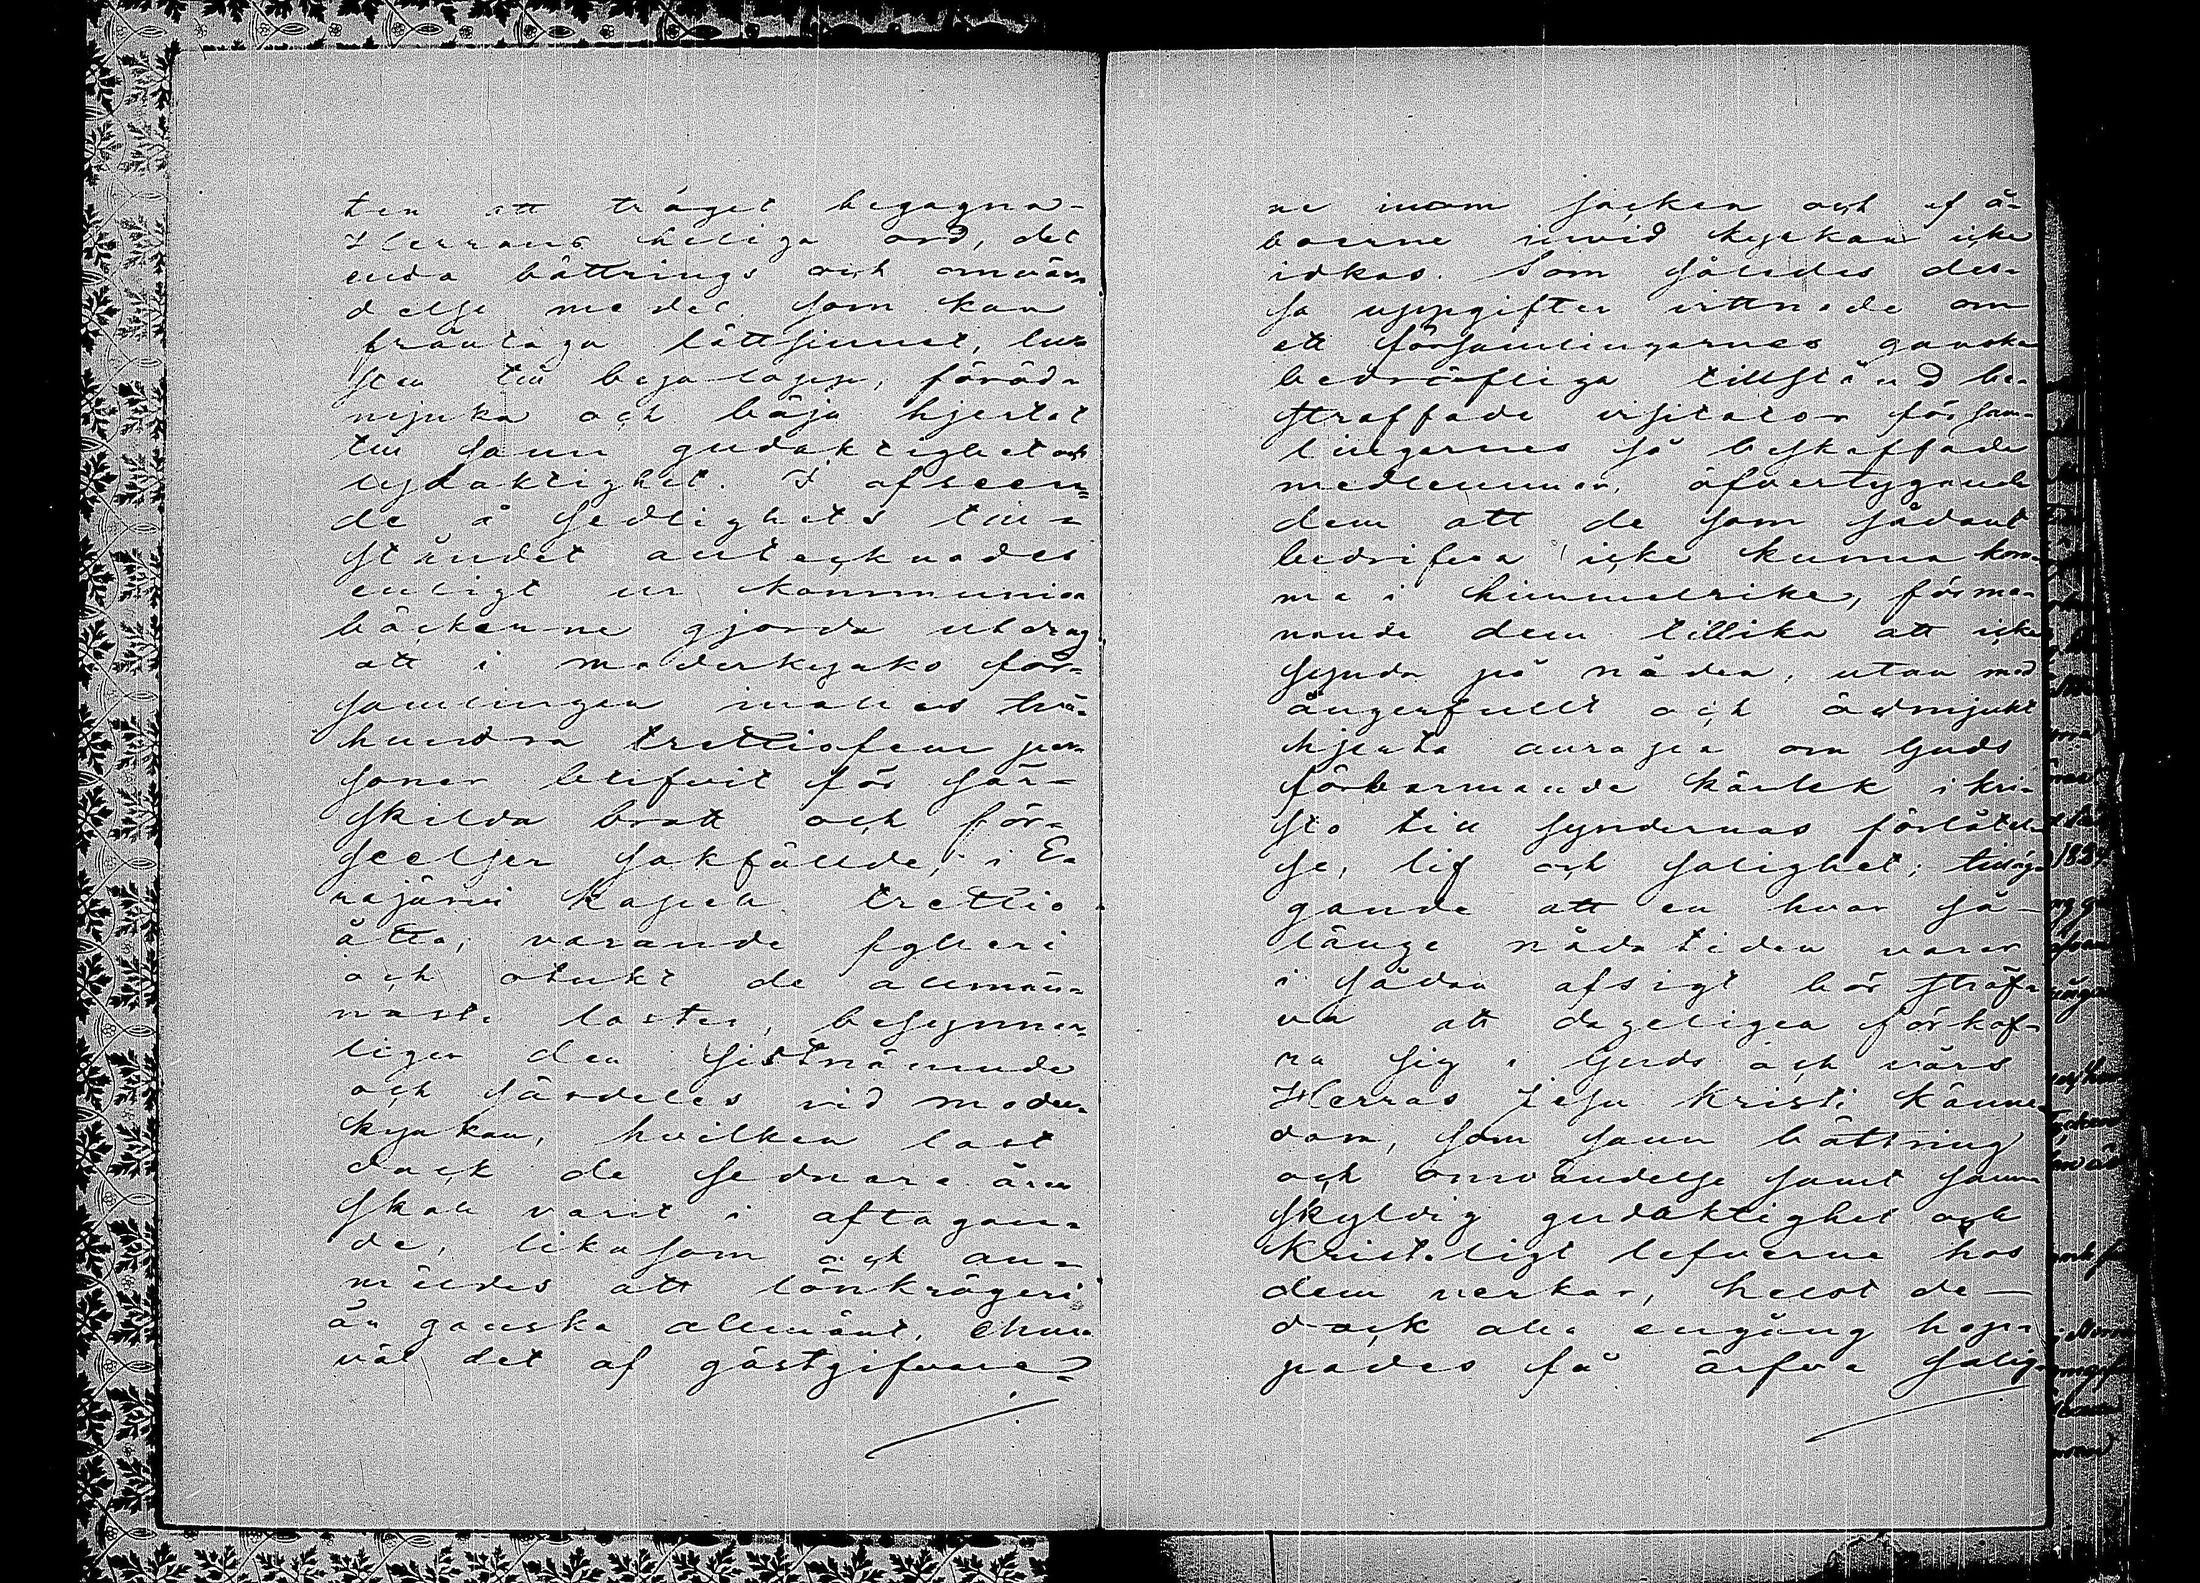 ten att träget begagna
Herrans heliga ord, det
enda bättrings och omvän-
delse medel som kan
fråntaga lättsinnet, lu-
sten till
mjuka och böja hjertat
till sann gudaktighet och
lydaktighet. I afseen-
de å sedlighets till-
ståndet antecknades
enligt ur kommunion
böckerne gjorda utdrag
att i moderkyrko för-
samlingen inalles två-
hundra trettiofem per-
soner blifvit för sär-
skilda brott och för-
seelser sakfällde, i E-
rajärvi Kapell trettio
åtta, varande fylleri
och otukt de allmän-
naste laster, besynner-
ligen den sistnämnde
och särdeles vid moder-
kyrkan, hvilken last
dock de sednare åren
skall varit i aftagan-
de, likasom och an-
mäldes att lönkrögeri
är ganska allmänt, ehuru
väl det af gästgifvare-
ne inom socken och af å-
boerne invid kyrkan icke
idkas. Som således des-
sa uppgifter vittnade om
ett församlingarnes ganska
bedröfliga tillstånd be-
straffade visitator försam-
lingarnes så beskaffade
medlemmar, öfvertygande
dem att de som sådant
bedrifva icke kunna kom-
ma i himmelriket, förma-
nande dem tillika att icke
synda på nåden, utan med
ångerfullt och ödmjukt
hjerta anropa om Guds
förbarmande kärlek i Kri-
sto till syndernas förlåtel-
se, lif och salighet; tilläg-
gande att en hvar så-
länge nådatiden varar
i sådan afsigt bör sträf-
va att dageligen förkof-
ra sig i Guds och vårs
Herras Jesu Kristi känne-
dom, som sann bättring
och omvändelse samt sann
skyldig gudaktighet och
kristeligt lefverne hos
dem verkar, helst de
dock alla engång hop-
pades få ärfva salig-